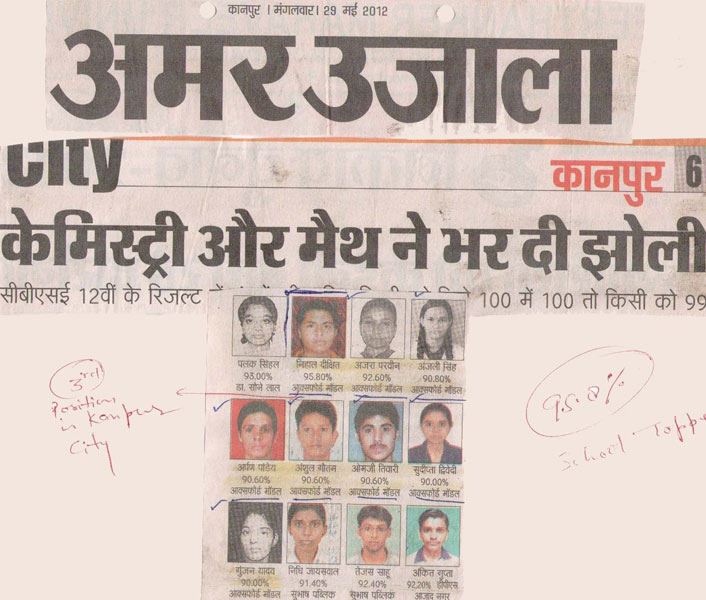 कानपुर । मंगलवार । 29 मई 2012
अमर उजाला
city कानपुर 6
केमिस्ट्री और मैथ ने भर दी झोली
सीबीएसई 12वीं के रिजल्ट में 100 में 100 तो किसी को 99
पलक सिंहल निहाल दीक्षित अजरा परवीन अंजली सिंह
93.00% 95.80% 92.60% 90.80%
डा. सोने लाल आक्सफोर्ड मॉडल आक्सफोर्ड मॉडल आक्सफोर्ड मॉडल
3rd
Position
in Kanpur
City
95.8%
School Toppe
अर्पण पांडेय अंशुल गौतम ओमजी तिवारी सुदीप्ता द्विवेदी
90.60% 90.60% 90.60% 90.00%
आक्सफोर्ड मॉडल आक्सफोर्ड मॉडल आक्सफोर्ड मॉडल आक्सफोर्ड मॉडल
गुंजन यादव निधि जायसवाल तेजस साहू अंकित गुप्ता
90.00% 91.40% 92.40% 92.20% डीपीएस
आक्सफोर्ड मॉडल सुभाष पब्लिक सुभाष पब्लिक आजाद नगर